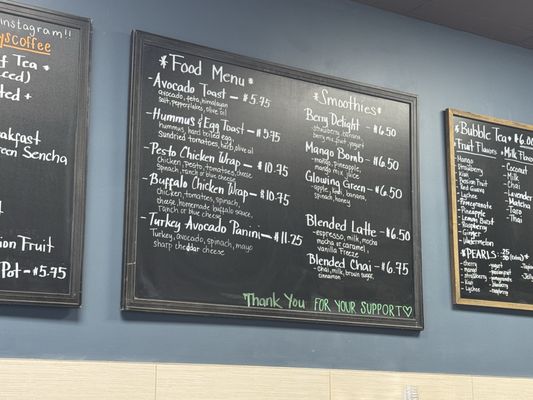 instagram!!
yscoffee
Tea *
iced)
+
breakfast
Sencha
Fruit
Pot -$5.75
* Food Menu *
- Avocado Toast - $5.75
avocado, feta, himalayan
salt, pepperflakes, olive oil
- Hummus & Egg Toast - $5.75
hummus, hard boiled egg,
sundried tomatoes, herb, olive oil
- Pesto Chicken Wrap - $10.75
Chicken, pesto, tomatoes, cheese,
Spinach, ranch or blue cheese
- Buffalo Chicken Wrap - $10.75
Chicken, tomatoes, spinach,
cheese, homemade buffalo sauce,
ranch or blue cheese
- Turkey Avocado Panini - $11.25
Turkey, avocado, spinach, mayo
sharp cheddar cheese
* Smoothies *
Berry Delight - $6.50
- strawberry, banana,
berry mix, fruit, yogurt
Mango Bomb - $6.50
- mango, pineapple,
mango mix, juice
Glowing Green - $6.50
- apple, kale, banana,
spinach, honey
Blended Latte - $6.50
- espresso, milk, mocha
mocha or caramel,
vanilla freeze
Blended Chai - $6.75
- Chai, milk, brown sugar,
cinnamon
Thank You FOR YOUR SUPPORT ♡
* Bubble Tea * $6.00
*Fruit Flavors
- Mango
- Strawberry
- Kiwi
- Passion Fruit
- Red Guava
- Green Apple
- Lychee
- Pomegranate
- Pineapple
- Peach
- Raspberry
- Cherry
- Ginger
- Watermelon
*Milk Flavors
- Coconut
- Milk
- Chai
- Lavender
- Matcha
- Taro
- Thai
*PEARLS
- cherry
- mango
- strawberry
- Kiwi
- Lychee